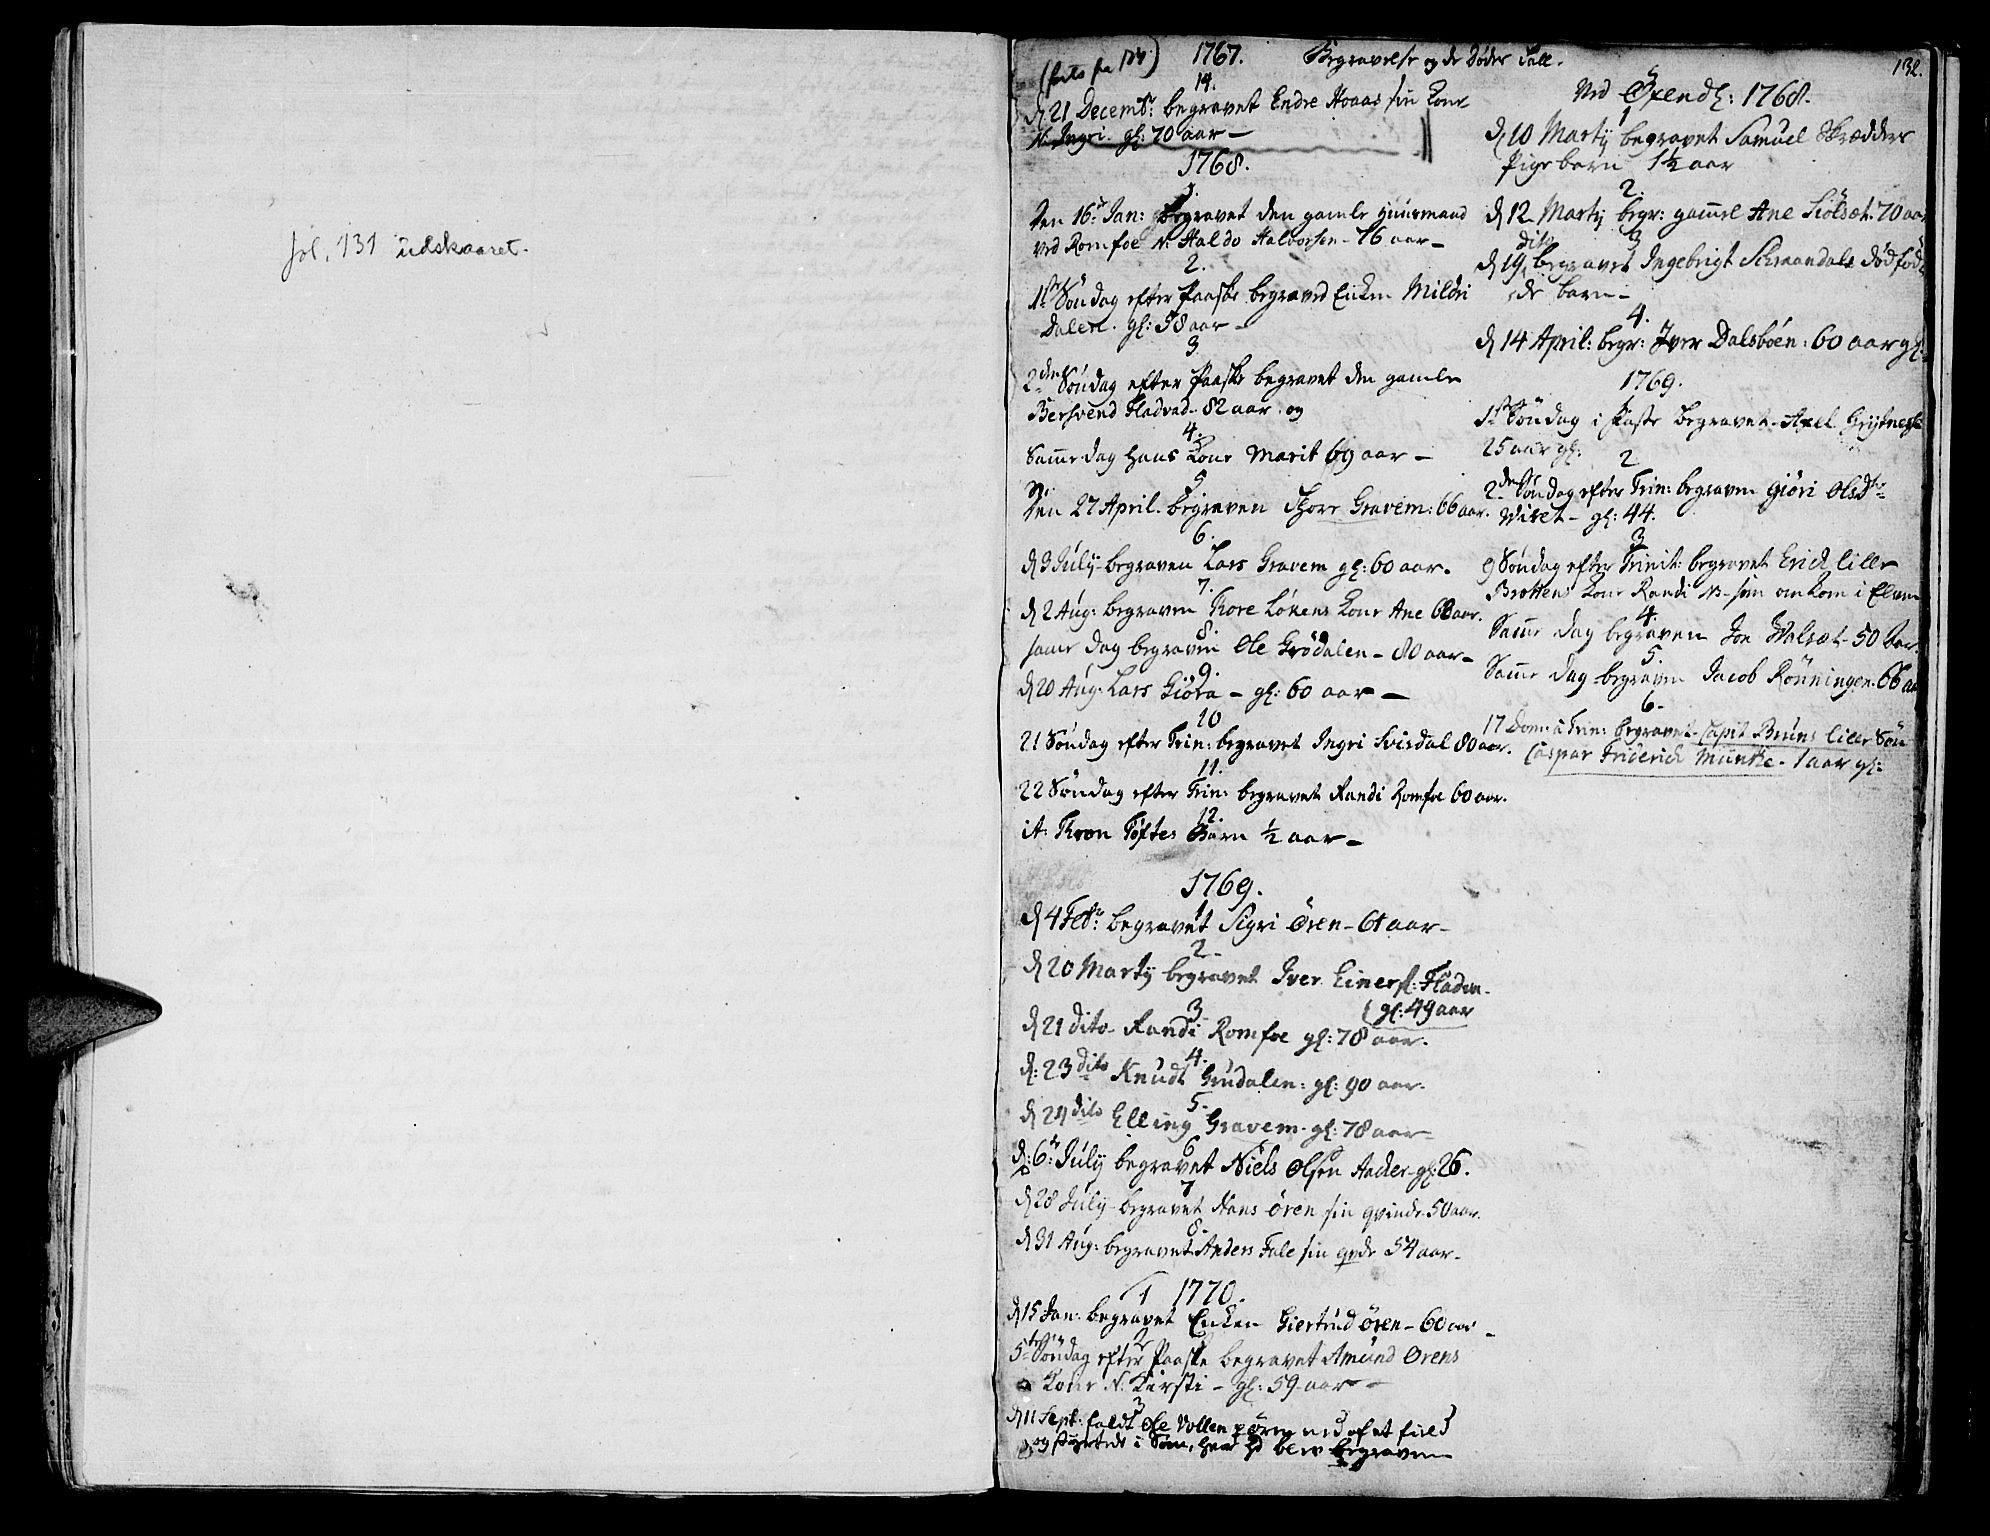 fol. 131 udskaaret.
132.
1767. Begravelse og de Dødes Tall.
14.
d 21 Decembr: begravet Endre Hoaas sin Kone
N. Ingri. gl: 70 aar —
1768.
1.
Den 16: Jan: Begravet den gamle Huusmand
ved Romfoe N. Haldo Halvorsen - 76 aar -
2.
1ste Søndag efter Paaske begraved Enken Mildri
Dalen. gl: 58 aar -
3
2den Søndag efter Paaske begravet den gamle
Bersvend Hladvad - 82 aar. og
4.
Samme dag hans Kone Marit 69 aar -
5
Den 27 April. begraven Thore Gravem: 66 aar.
6.
d 3 July - begraven Lars Gravem gl: 60 aar.
7.
d 2 Aug: begraven Thore Løkens Kone Ane 68 aar.
8
samme dag begraven Ole Grødalen - 80 aar -
9.
d 20 Aug. Lars Giøra - gl: 60 aar -
10
21 Søndag efter Trin: begravet Ingri Svisdal 80 aar.
11.
22 Søndag efter Trin: begravet Randi Romfoe 60 aar.
12.
it: Thron Tøftes Barn ½ aar -
1769.
1
d 4 Febr: begravet Sigri Øren - 61 aar -
2-
d 20 Marty begravet Iver Einers: Hladve-
gl: 49 aar
3
d 21 dito - Randi Romfoe gl: 78 aar.
4.
d: 23 dito Knudt Grudalen: gl: 90 aar.
5.
d 24 dito Elling Gravem - gl: 78 aar -
6
d: 6te July begravet Niels Olsen Aacker - gl: 26.
7
d 28 July - begravet Hans Øren sin qvinde 50 aar.
8.
d 31 Aug: begravet Anders Fale sin qvde 54 aar -
1770.
1
d 15 Jan: begravet Enken Giertrud Øren - 60 aar -
2
5te Søndag efter Paaske begravet Amund Ørens
Kone N. Kirsti - gl: 59 aar -
3
d 11 Sept: faldt Ole Vollen Øren ned af et field
og styrtede i Søen, hvor hd blev begraven
Ved Øxend: 1768.
1
d 10 Marty begravet Samuel Skrædders
Pigebarn 1½ aar
2.
d 12 Marty begr: gammel Ane Siølset. 70 aar
3
d 19 dito begravet Ingebrigt Schraandals dødfød-
de barn -
4.
d 14 April: begr: Iver Dalsbøen: 60 aar gl:
1769.
1
1ste Søndag i Faste begravet - Axel
25 aar gl:
2
2den Søndag efter Trin: begraven Giøri Olsdtr
Wiset - gl: 44.
3
9 Søndag efter Trinit: begravet Erick lille
Brottens Kone Randi NB - som omkom i Elven
4.
Samme dag begraven Joe Hvalsæt - 50 Aar.
5.
Samme dag begraven Jacob Rønningen. 66 aar
6-
17 Dom: a Trin: begravet - Capit Bruns lille Søn
Caspar Friderich Munthe - 1 aar gl: